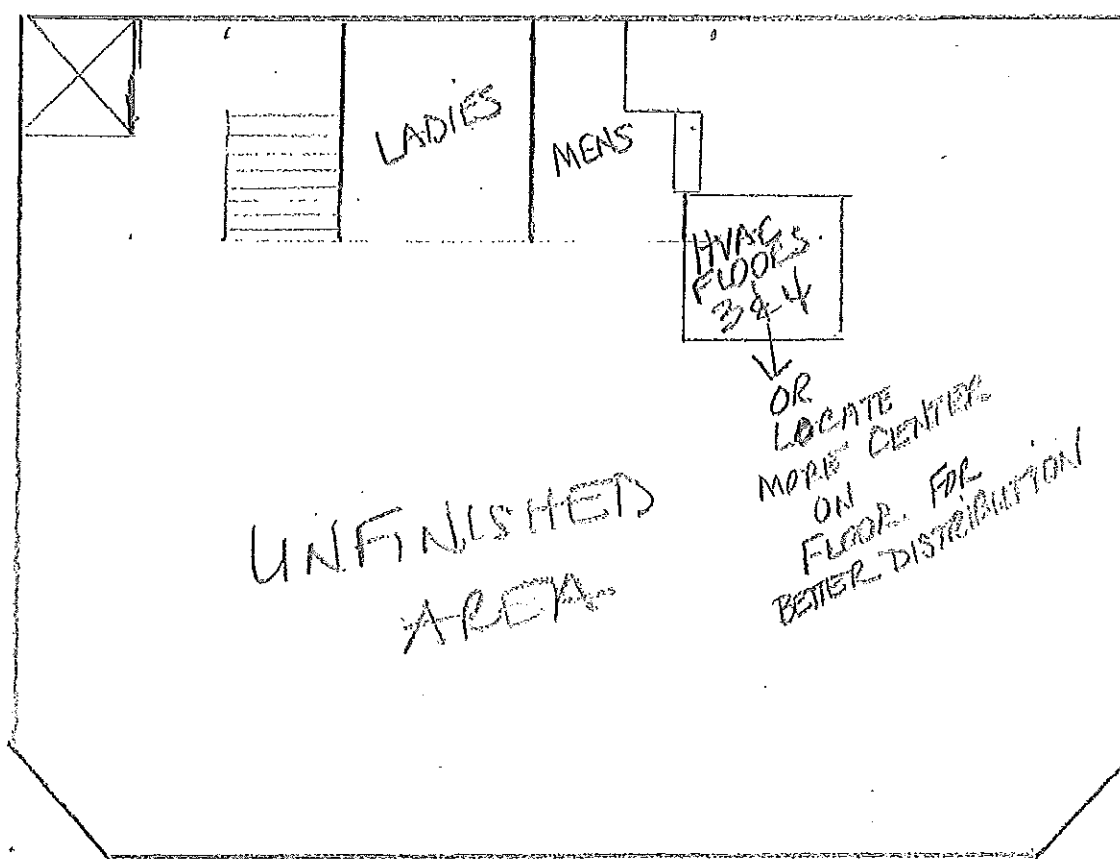 LADIES
MENS
HVAC
FLOORS
3 & 4
OR
LOCATE
MORE CENTER
ON
FLOOR FOR
BETTER DISTRIBUTION
UNFINISHED
AREA